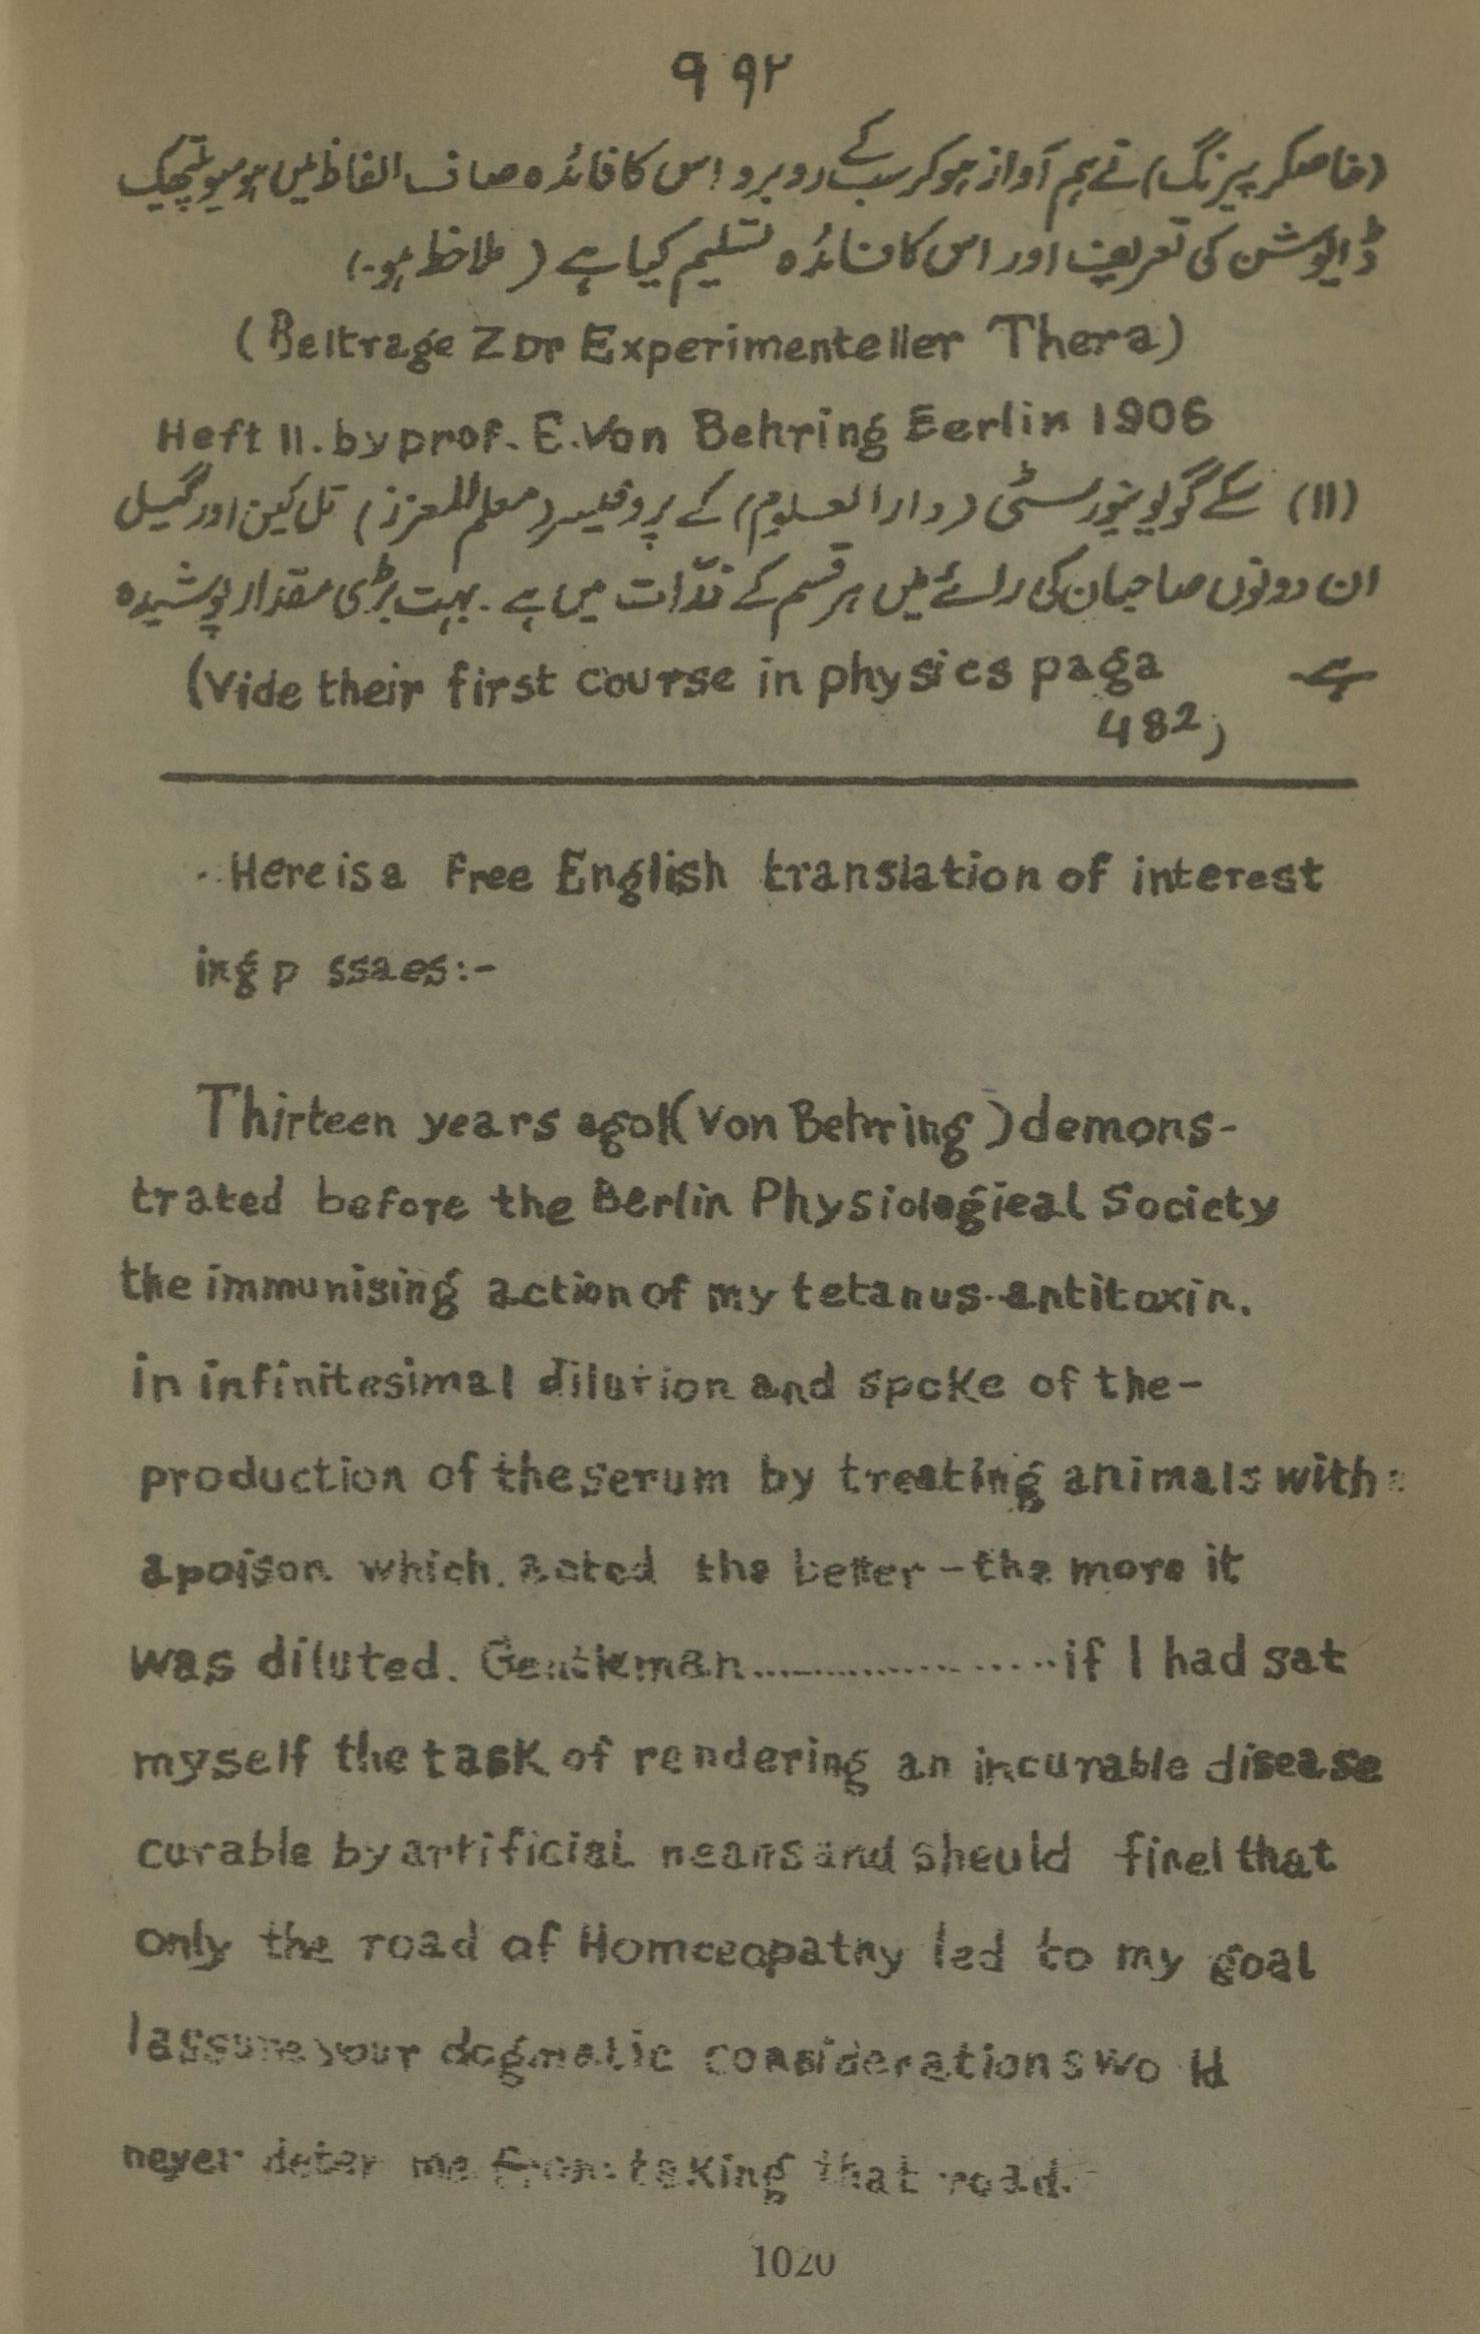 ۹۹۲
(خاصکر بیرنگ) نے ہم آواز ہوکر سب کے روبرو اس کا فائدہ صاف الفاظ میں ہومیوپیتھک
ڈایلوشن کی تعریف اور اس کا فائدہ تسلیم کیا ہے (ملاحظہ ہو۔)
(Beltrage Zur Experimenteller Thera)
Heft II. by prof. E. Von Behring Eerlin 1906
(۱۱) کے گو یونیورسٹی (دارالعلوم) کے پروفیسر (معلم المعزز) تل کین اور گیل
ان دونوں صاحبان کی رائے میں ہر قسم کے ذرّات میں ہے۔ بہت بڑی مقدار پوشیدہ
ہے (Vide their first course in physics paga
482)
Here is a Free English translation of interest
ing p ssaes:-
Thirteen years agoI (Von Behring) demons-
trated before the Berlin Physiologieal Society
the immunising action of my tetanus-antitoxin.
in infinitesimal dilution and spoke of the-
production of the serum by treating animals with
a poison which. acted the better - the more it
was diluted. Gentleman.....................if I had sat
myself the task of rendering an incurable disease
curable by artificial neans and sheuld finel that
only the road of Homceopatny led to my goal
I assure your dogmatic considerations wo ld
never deter me from taking that road.
1020